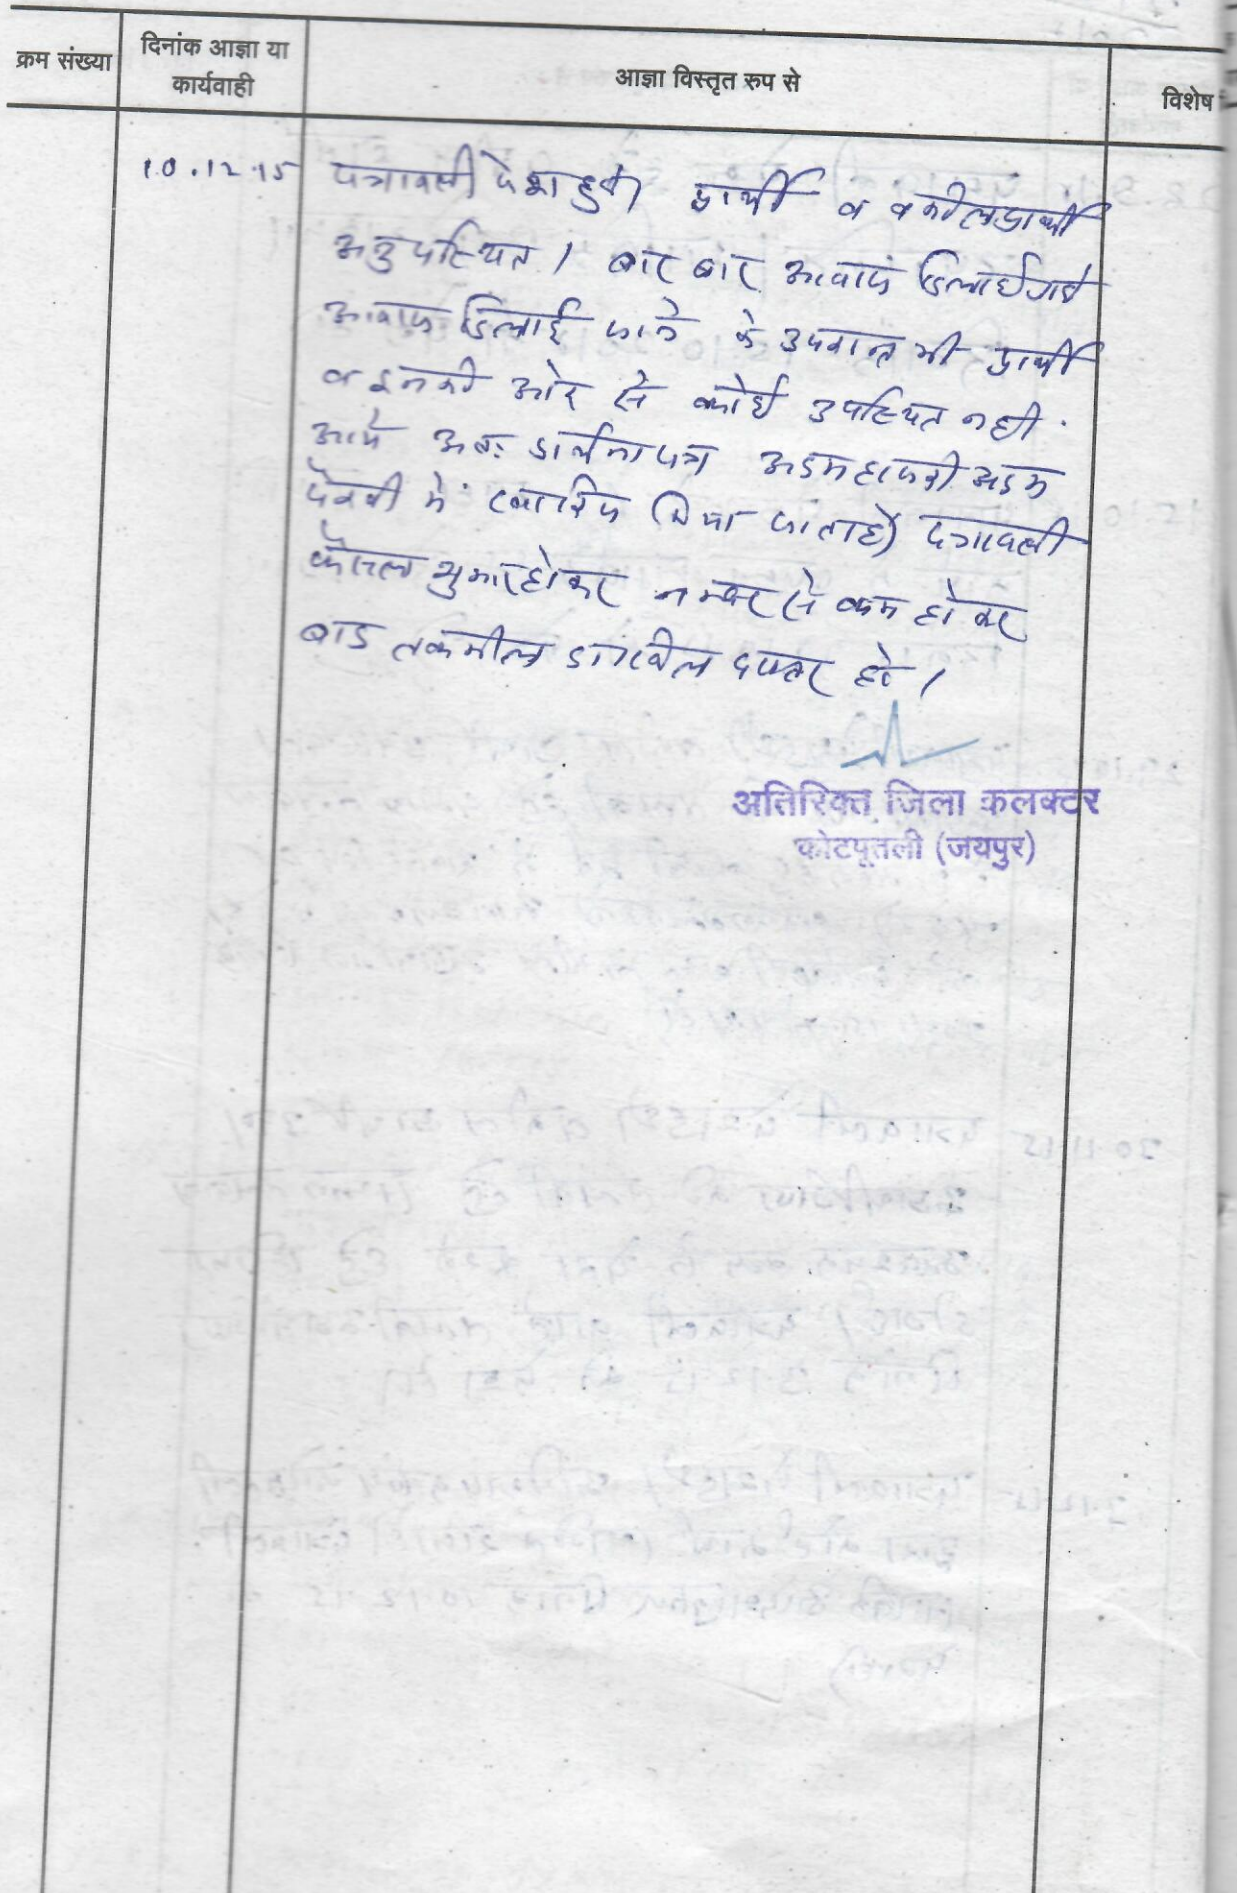 क्रम संख्या
दिनांक आज्ञा या
कार्यवाही
आज्ञा विस्तृत रुप से
विशेष
10.12.15
पत्रावली पेश हुई। प्रार्थी व वकील प्रार्थी
अनुपस्थित। बार बार आवाज दिलाई गई
आवाज दिलाई जाने के उपरान्त भी प्रार्थी
व इनकी ओर से कोई उपस्थित नही
आये अतः प्रार्थना पत्र अदम हाजरी अदम
पैरवी में खारिज किया जाता है। पत्रावली
फैसल शुमार होकर नम्बर से कम होकर
बाद तकमील दाखिल दफ्तर हो।
अतिरिक्त जिला कलक्टर
कोटपूतली (जयपुर)